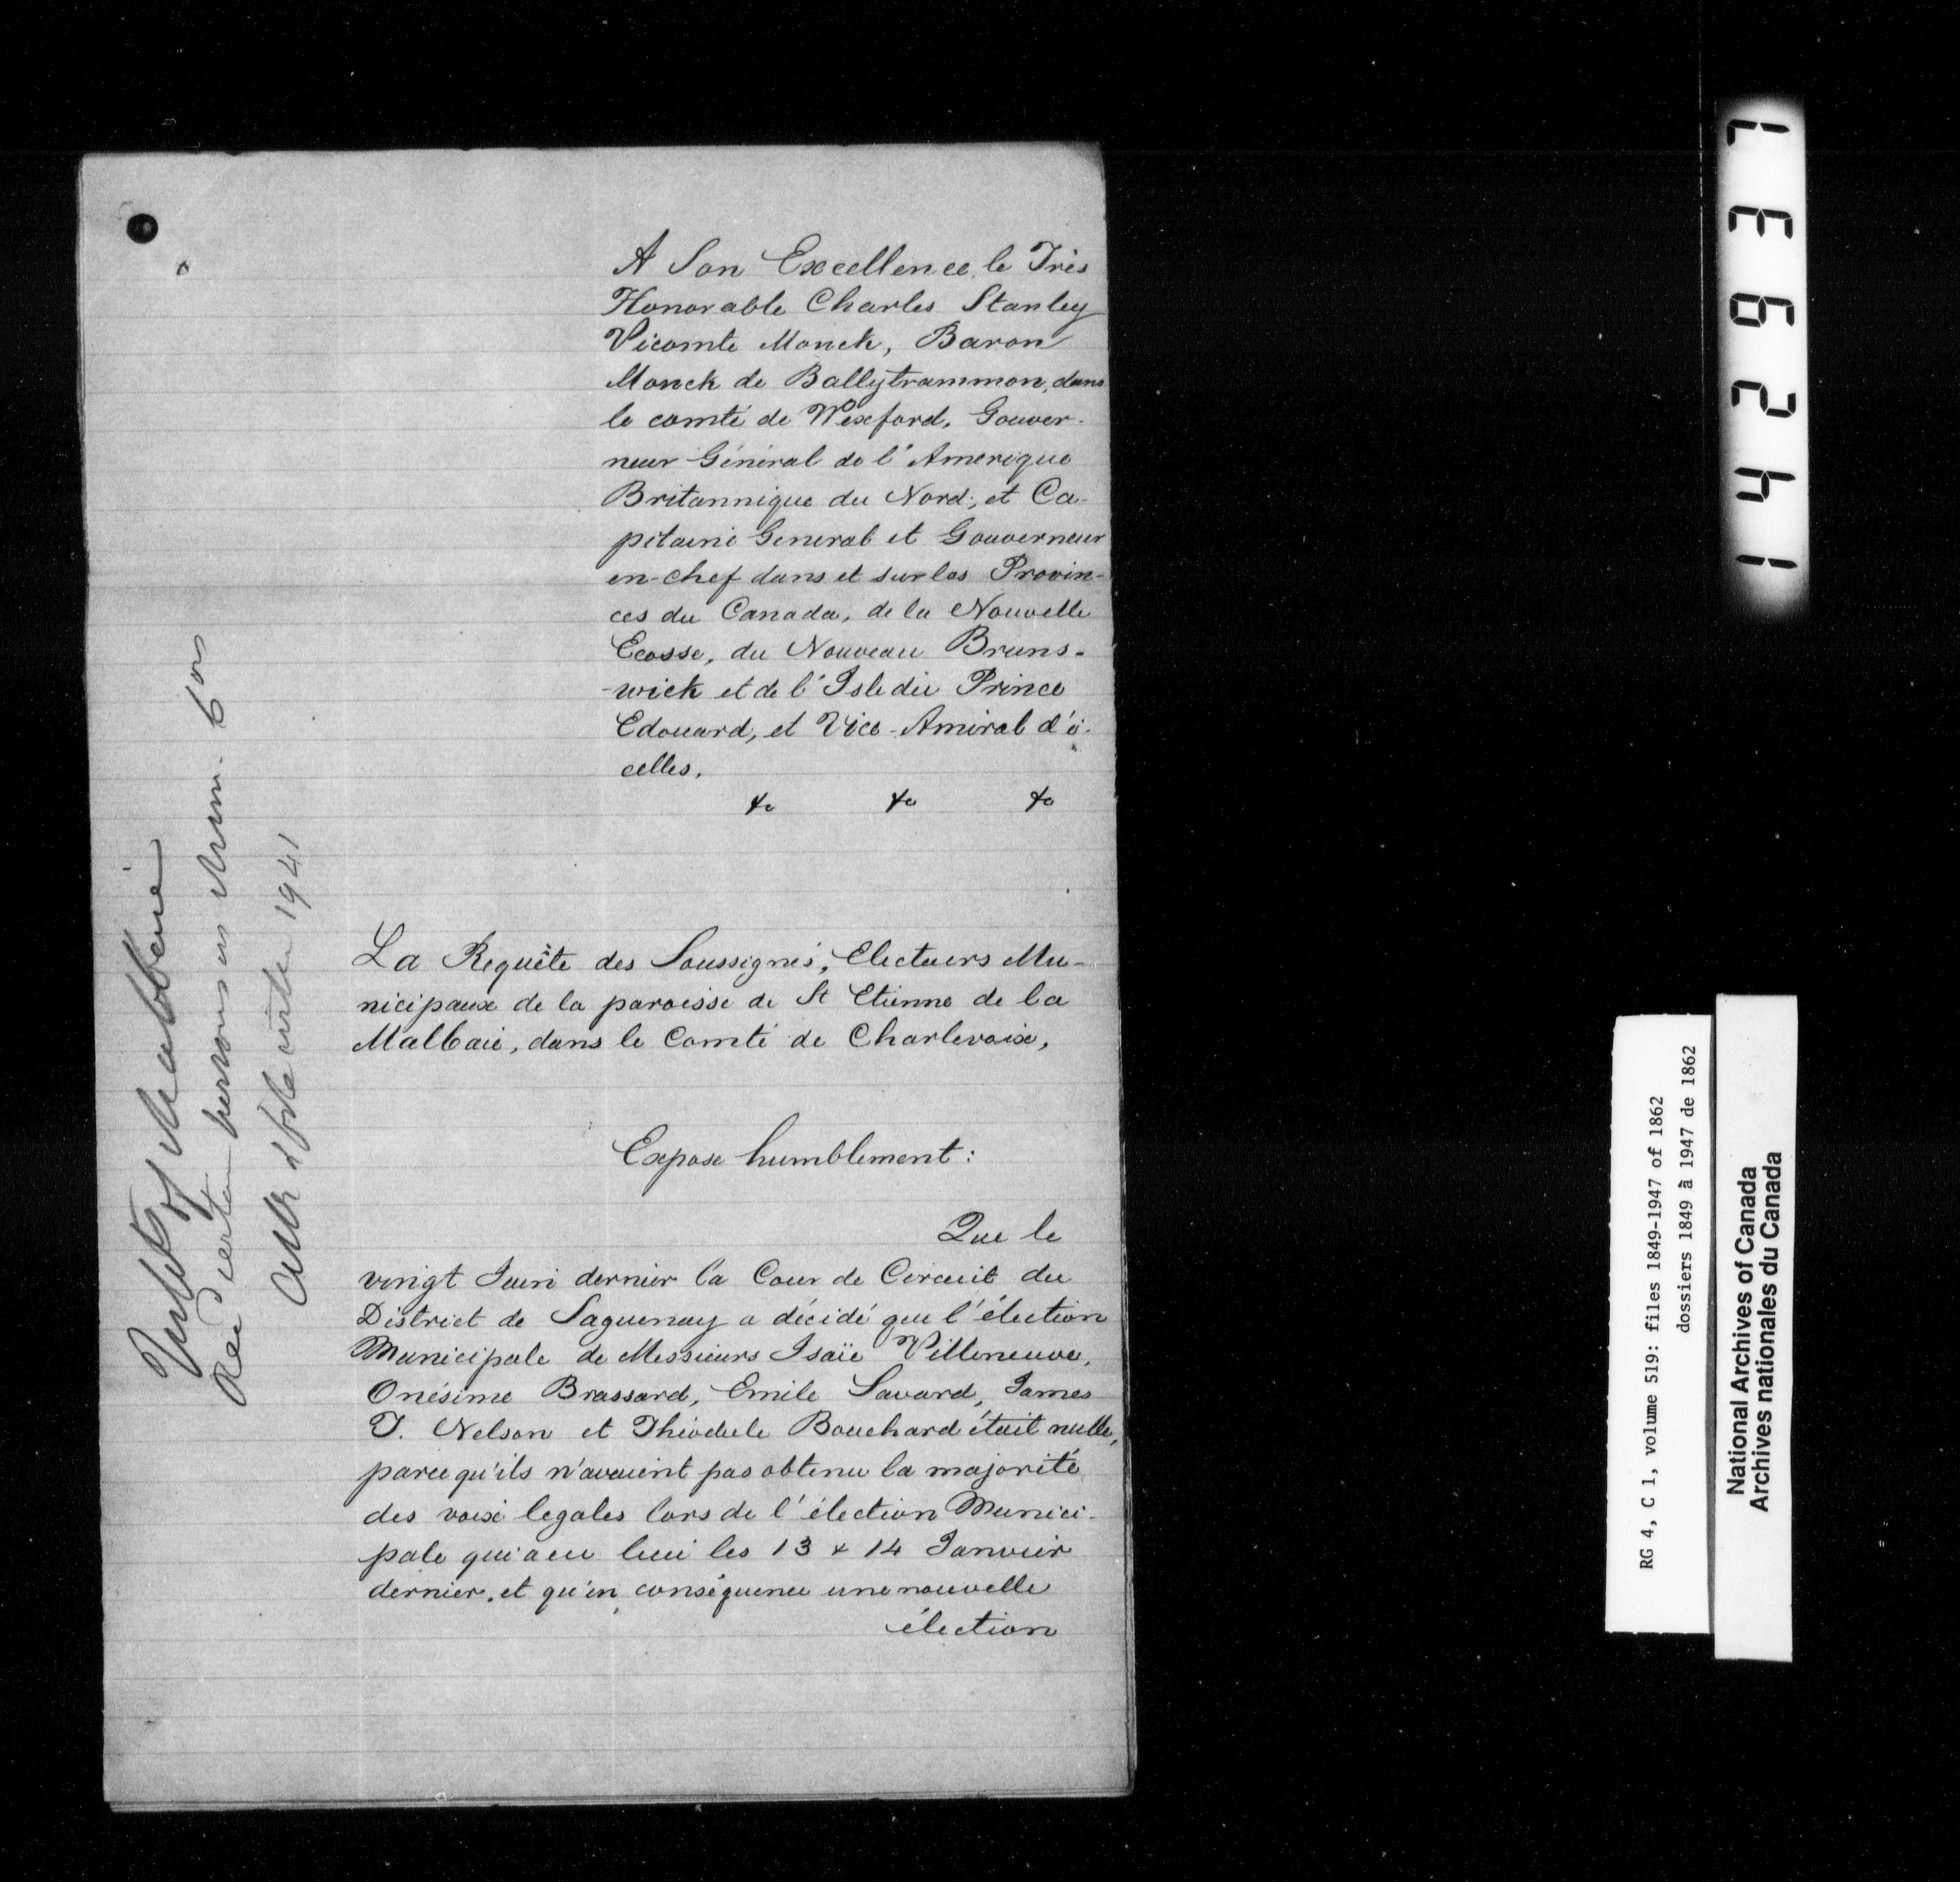 A Son Excellence le Très
Honorable Charles Stanley
Vicomte Monck, Baron
Monck de Ballytrammon, dans
le comté de Wexford, Gouver-
neur Général de l'Amerique
Britannique du Nord, et Ca-
pitaine General et Gouverneur
en-chef dans et sur les Provin-
ces du Canada, de la Nouvelle
Ecosse, du Nouveau Bruns-
-wick et de l'Isle du Prince
Edouard, et Vice-Amiral d'i-
celles.
&c &c &c
La Requête des Soussignés, Electeurs Mu-
nicipaux de la paroisse de St Etienne de la
Malbaie, dans le Comté de Charlevoix,
Expose humblement:
Que le
vingt Juin dernier la Cour de Circuit du
District de Saguenay a décidé que l'élection
Municipale de Messieurs Isaïe Villeneuve,
Onésime Brassard, Emile Savard, James
T. Nelson et Théodule Bouchard était nulle,
parce qu'ils n'avaient pas obtenu la majorité
des voix legales lors de l'élection Munici-
pale qui a eu lieu les 13 & 14 Janvier
dernier, et qu'en conséquence une nouvelle
élection
Inhts of Malbaie
certain persons as Mun. Cors
1941
142637
RG 4, C 1, volume 519: files 1849-1947 of 1862
dossiers 1849 à 1947 de 1862
National Archives of Canada
Archives nationales du Canada